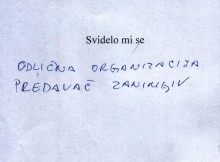 Svidelo mi se
ODLIČNA ORGANIZACIJA
PREDAVAČ ZANIMLJIV